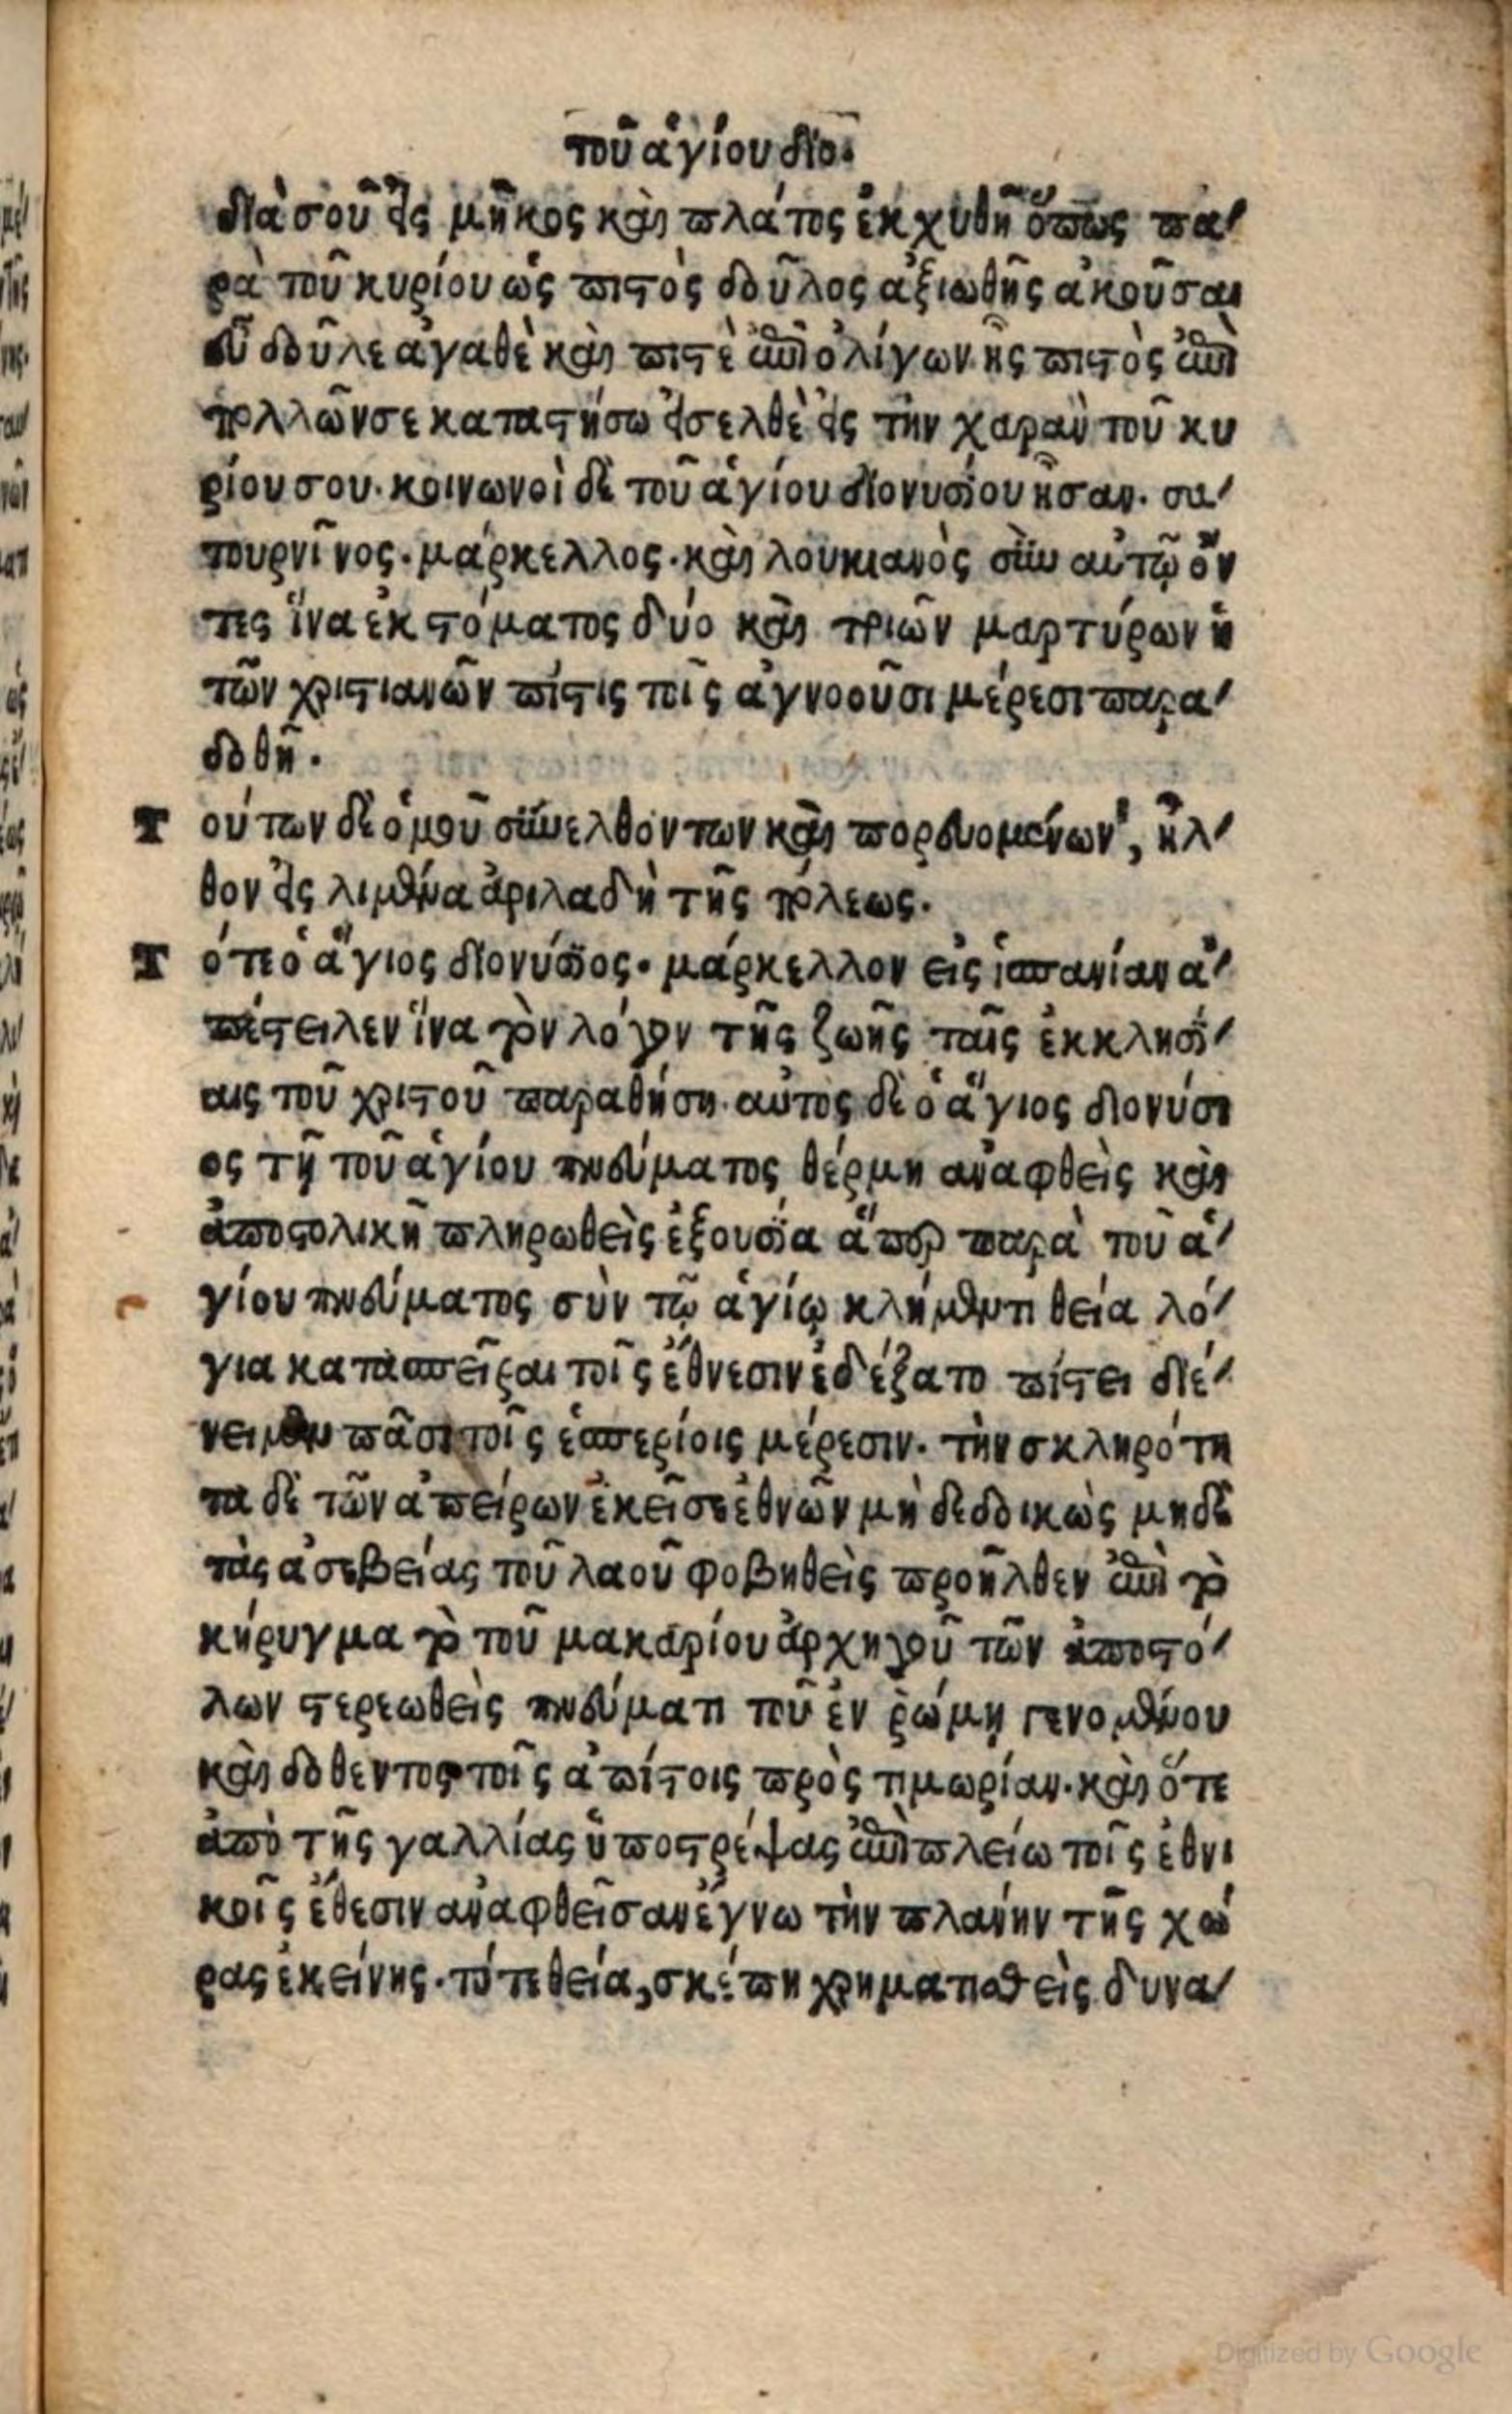 τοῦ ἁγίου διο.
διὰ σοῦ εἰς μῆκος καὶ πλάτος ἐκχυθῆ ὅπως πα-
ρὰ τοῦ κυρίου ὡς πιστὸς δοῦλος ἀξιωθῆς ἀκοῦσαι
εὖ δοῦλε ἀγαθὲ καὶ πιστὲ ἐπὶ ὀλίγων ἦς πιστὸς ἐπὶ
πολλῶν σε καταστήσω εἴσελθὲ εἰς τὴν χαρὰν τοῦ κυ
ρίου σου. κοινωνοὶ δὲ τοῦ ἁγίου διονυσίου ἦσαν. σα-
τουρνῖνος. μάρκελλος. καὶ λουκιανὸς σὺν αὐτῷ ὄν
τες ἵνα ἐκ στόματος δύο καὶ τριῶν μαρτύρων ἡ
τῶν χριστιανῶν πίστις τοῖς ἀγνοοῦσι μέρεσι παρα-
δοθῆ.
Τούτων δὲ ὁμοῦ συνελθόντων καὶ πορευομένων, ἦλ-
θον εἰς λιμένα ἀριλαδὴ τῆς πόλεως.
Τότε ὁ ἅγιος διονύσιος. μάρκελλον εἰς ἱσπανίαν ἀ-
πέστειλεν ἵνα τὸν λόγον τῆς ζωῆς ταῖς ἐκκλησί-
αις τοῦ χριστοῦ παραθήση. αὐτὸς δὲ ὁ ἅγιος διονύσι
ος τῆ τοῦ ἁγίου πνεύματος θέρμη ἀναφθεὶς καὶ
ἀποστολικῆ πληρωθεὶς ἐξουσία ἅπερ παρὰ τοῦ ἁ-
γίου πνεύματος σὺν τῷ ἁγίῳ κλήμεντι θεία λό-
για κατασπεῖραι τοῖς ἔθνεσιν ἐδέξατο πίστει διέ-
νειμεν πᾶσι τοῖς ἑσπερίοις μέρεσιν. τὴν σκληρότη
τα δὲ τῶν ἀπείρων ἐκεῖσε ἐθνῶν μὴ δεδοικὼς μηδὲ
τὰς ἀσεβείας τοῦ λαοῦ φοβηθεὶς προῆλθεν ἐπὶ τὸ
κήρυγμα τὸ τοῦ μακαρίου ἀρχηγοῦ τῶν ἀποστό-
λων στερεωθεὶς πνεύματι τοῦ ἐν ῥώμῃ γενομένου
καὶ δοθέντος τοῖς ἀπίστοις πρὸς τιμωρίαν. καὶ ὅτε
ἀπὸ τῆς γαλλίας ὑποστρέψας ἐπὶ πλείω τοῖς ἐθνι
κοῖς ἔθεσιν ἀναφθεῖσαν ἔγνω τὴν πλάνην τῆς χώ
ρας ἐκείνης. τότε θεία, σκέπη χρηματισθεὶς δυνα-